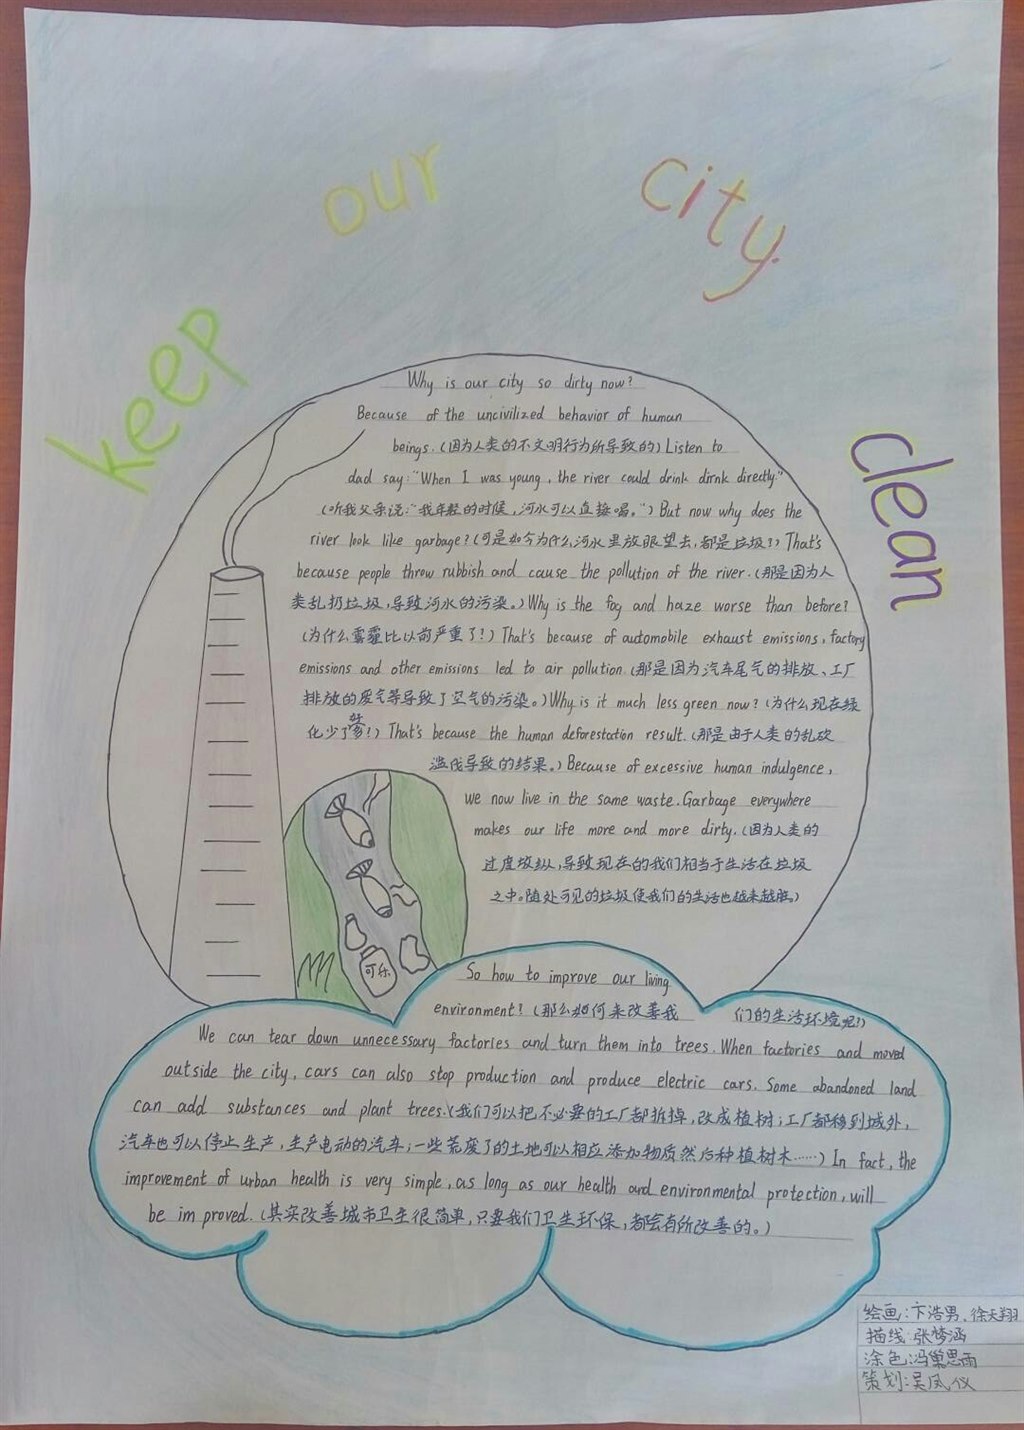 keep our city clean
Why is our city so dirty now?
Because of the uncivilized behavior of human
beings.(因为人类的不文明行为所导致的) Listen to
dad say:"When I was young, the river could drink dirnk directly."
(听我父亲说:"我年轻的时候,河水可以直接喝。") But now why does the
river look like garbage?(可是如今为什么河水里放眼望去,都是垃圾?) That's
because people throw rubbish and cause the pollution of the river.(那是因为人
类乱扔垃圾,导致河水的污染。) Why is the fog and haze worse than before?
(为什么雾霾比以前严重了!) That's because of automobile exhaust emissions, factory
emissions and other emissions led to air pollution.(那是因为汽车尾气的排放、工厂
排放的废气等导致了空气的污染。) Why is it much less green now? (为什么现在绿
化少了!) That's because the human deforestation result.(那是由于人类的乱砍
滥伐导致的结果。) Because of excessive human indulgence,
we now live in the same waste. Garbage everywhere
makes our life more and more dirty.(因为人类的
过度放纵,导致现在的我们相当于生活在垃圾
之中。随处可见的垃圾使我们的生活也越来越脏。)
可乐
So how to improve our living
environment? (那么如何来改善我 们的生活环境呢?)
We can tear down unnecessary factories and turn them into trees. When factories and moved
outside the city, cars can also stop production and produce electric cars. Some abandoned land
can add substances and plant trees.(我们可以把不必要的工厂都拆掉,改成植树;工厂都移到城外,
汽车也可以停止生产,生产电动的汽车;一些荒废了的土地可以相应添加物质然后种植树木……) In fact, the
improvement of urban health is very simple, as long as our health and environmental protection, will
be im proved. (其实改善城市卫生很简单,只要我们卫生环保,都会有所改善的。)
绘画:卞浩男、徐天翔
描线:张梦涵
涂色:冯巢思雨
策划:吴凤仪